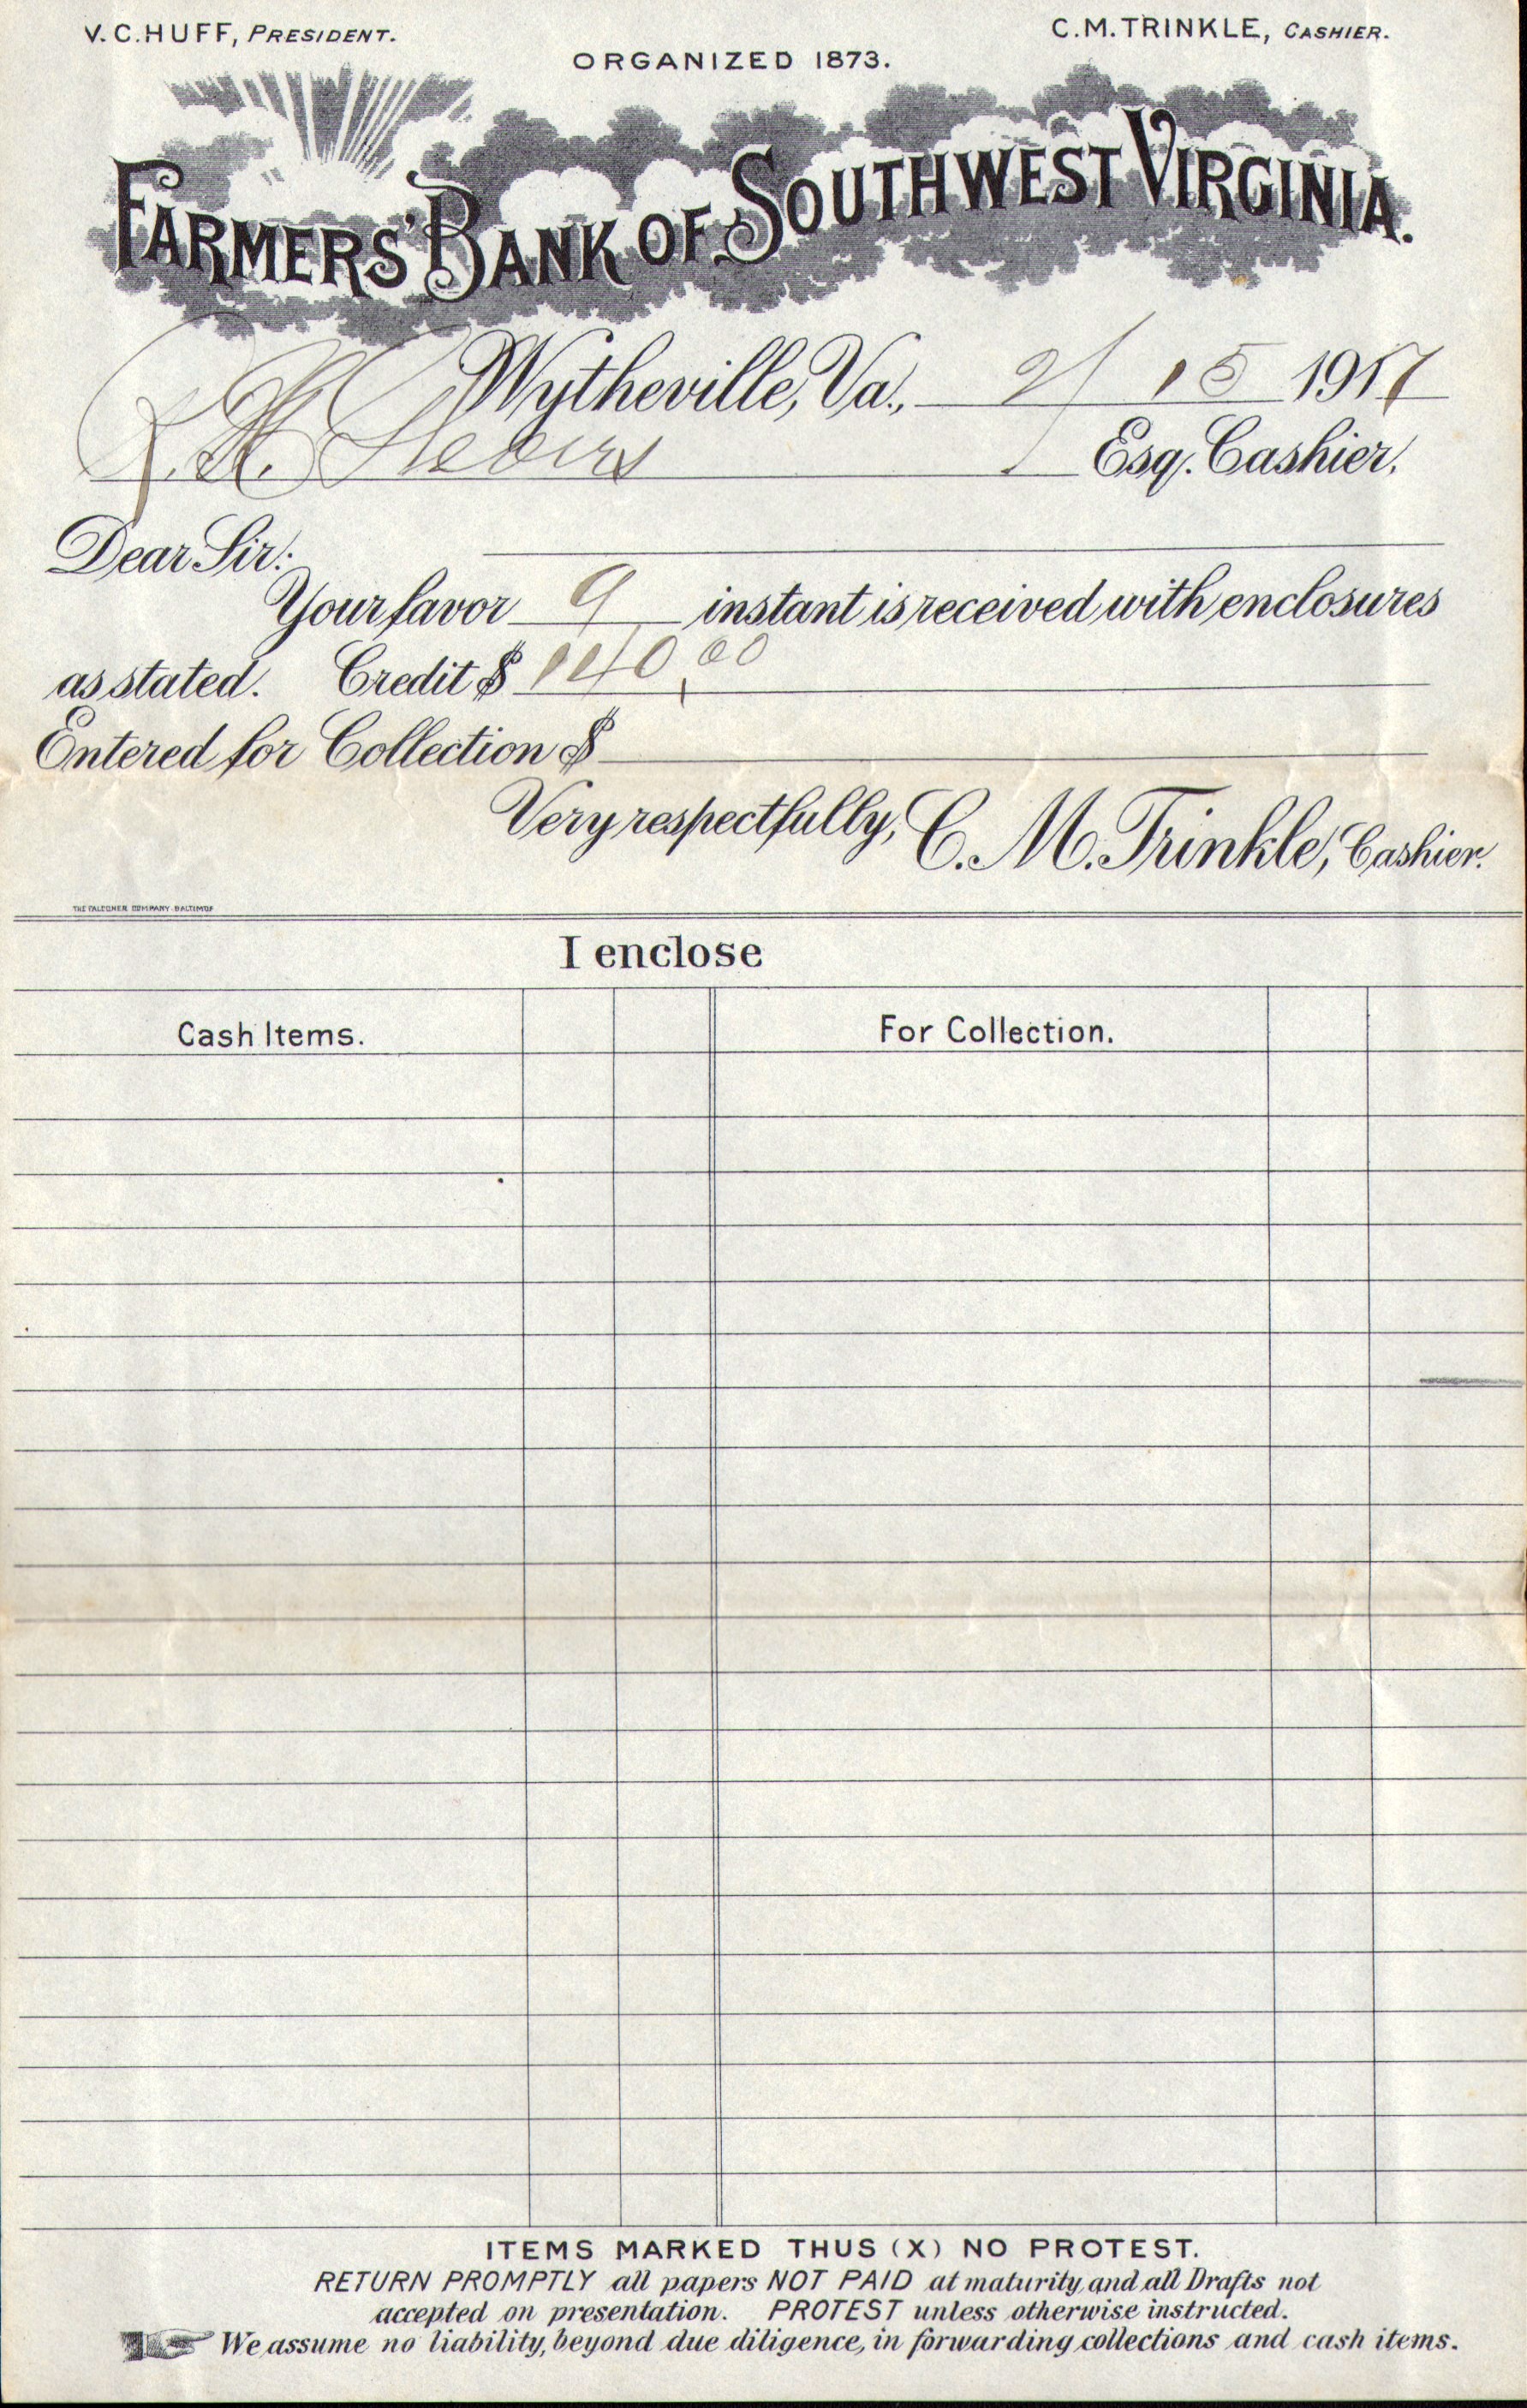 V. C. HUFF, PRESIDENT.
C. M. TRINKLE, CASHIER.
ORGANIZED 1873.
FARMERS' BANK OF SOUTHWEST VIRGINIA.
Wytheville, Va., 2/15 1917
R. H. Esq. Cashier.
Dear Sir:
Your favor 9 instant is received with enclosures
as stated. Credit $ 140,00
Entered for Collection $
Very respectfully, C. M. Trinkle, Cashier.
THE FALCONER COMPANY-BALTIMORE
I enclose
Cash Items. For Collection.
ITEMS MARKED THUS (X) NO PROTEST.
RETURN PROMPTLY all papers NOT PAID at maturity, and all Drafts not
accepted on presentation. PROTEST unless otherwise instructed.
We assume no liability, beyond due diligence, in forwarding collections and cash items.